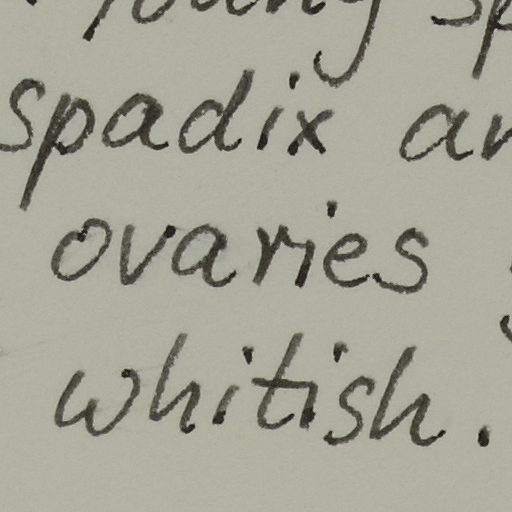 Young sp
spadix an
ovaries
whitish.